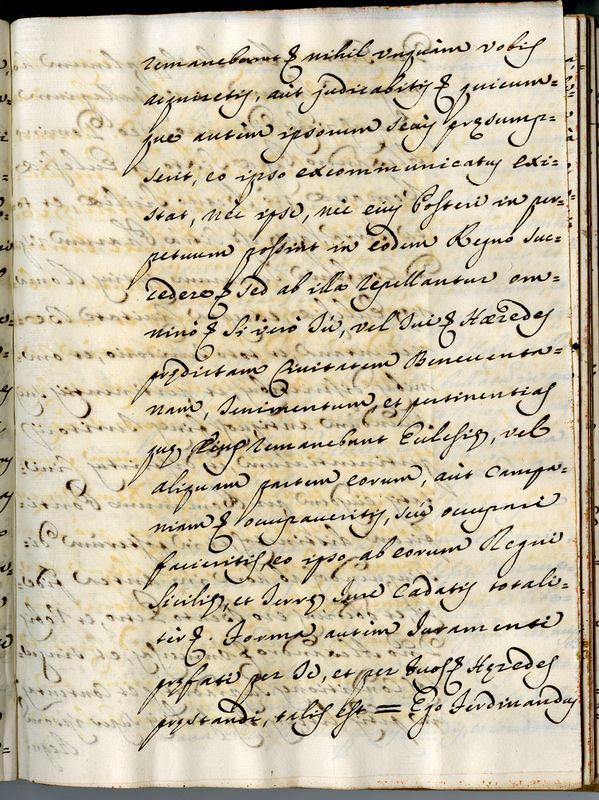 remanebunt et nihil unquam vobis
acquiretis, aut judicabitis et quicum=
que autem ipsorum secus pręsump=
serit, eo ipso excommunicatus exi=
stat, nec ipse, nec eius Posteri in per=
petuum possint in eodem Regno suc=
cedere et sed ab illo repellantur om=
nino et Si vero Tu, vel tui et Hæredes
prędictam Civitatem Beneventa=
nam, Tenimentum, et pertinentias
quę remanebunt Ecclesię, vel
aliquam partem eorum, aut Campa=
niam et occupaveritis, seu occupari
facieritis, eo ipso ab eorum Regni
Sicilię, et Terrę Iure Cadatis totali=
ter et. Forma autem Juramenti
pręfati per Te, et per tuos et Hęredes
pręstandi, talis est = Ego Ferdinandus